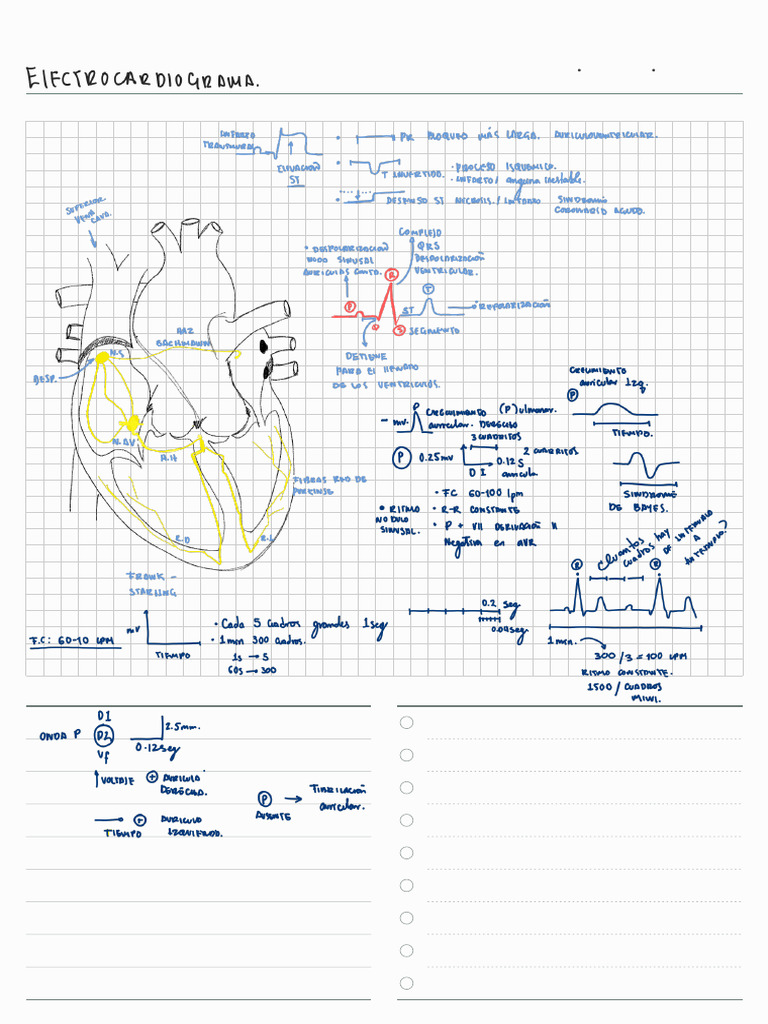 ELECTROCARDIOGRAMA.
INFARTO
TRANSMURAL
ELEVACION
ST
• PR BLOQUEO MÁS LARGA. AURICULOVENTRICULAR.
• T INVERTIDO.
• PROCESO ISQUEMICO.
• INFARTO/ angina inestable.
• DESCENSO ST NECROSIS/INFARTO
SINDROME
CORONARIO AGUDO.
SUPERIOR
VENA
CAVA.
COMPLEJO
QRS
DESPOLARIZACIÓN
VENTRICULAR.
• DESPOLARIZACION
NODO SINUSAL
P
R
Q
S
T
ST
REPOLARIZACIÓN
SEGMENTO
DETIENE
PARA EL LLENADO
DE LOS VENTRICULOS.
HAZ
BACHMANN
N.S
DESP.
N.AV
A.H
FIBRAS RED DE
R.D
R.I
FRANK -
STARLING
CRECIMIENTO
auricular Izq.
P
TIEMPO.
SINDROME
DE BAYES.
- mv.
P
CRECIMIENTO (P) ulmonar.
auricular. DERECHO
3 CUADRITOS
P 0.25mv
0.12 S
2 CUADRITOS
D I
auricula
• RITMO
NODULO
SINUSAL.
• FC 60-100 lpm
• R-R CONSTANTE
• P + VII DERIVACIÓN II
Negativa en aVR
¿Cuantos
cuadros hay
DE UN INTERVALO
A
INTERVALO?
R
R
1 min.
300/3 = 100 LPM
RITMO CONSTANTE.
1500 / CUADROS
MINI.
0.2 seg
0.04seg
F.C: 60-10 LPM
mV
TIEMPO
• Cada 5 cuadros grandes 1seg
• 1 min 300 cuadros.
1s → 5
60s → 300
ONDA P
D1
D2
Vf
2.5mm.
0.12seg
↑ VOLTAJE + AURICULA
DERECHA.
→
TIEMPO
AURICULO
IZQUIERDO.
P
AUSENTE
→ FIBRILACIÓN
auricular.